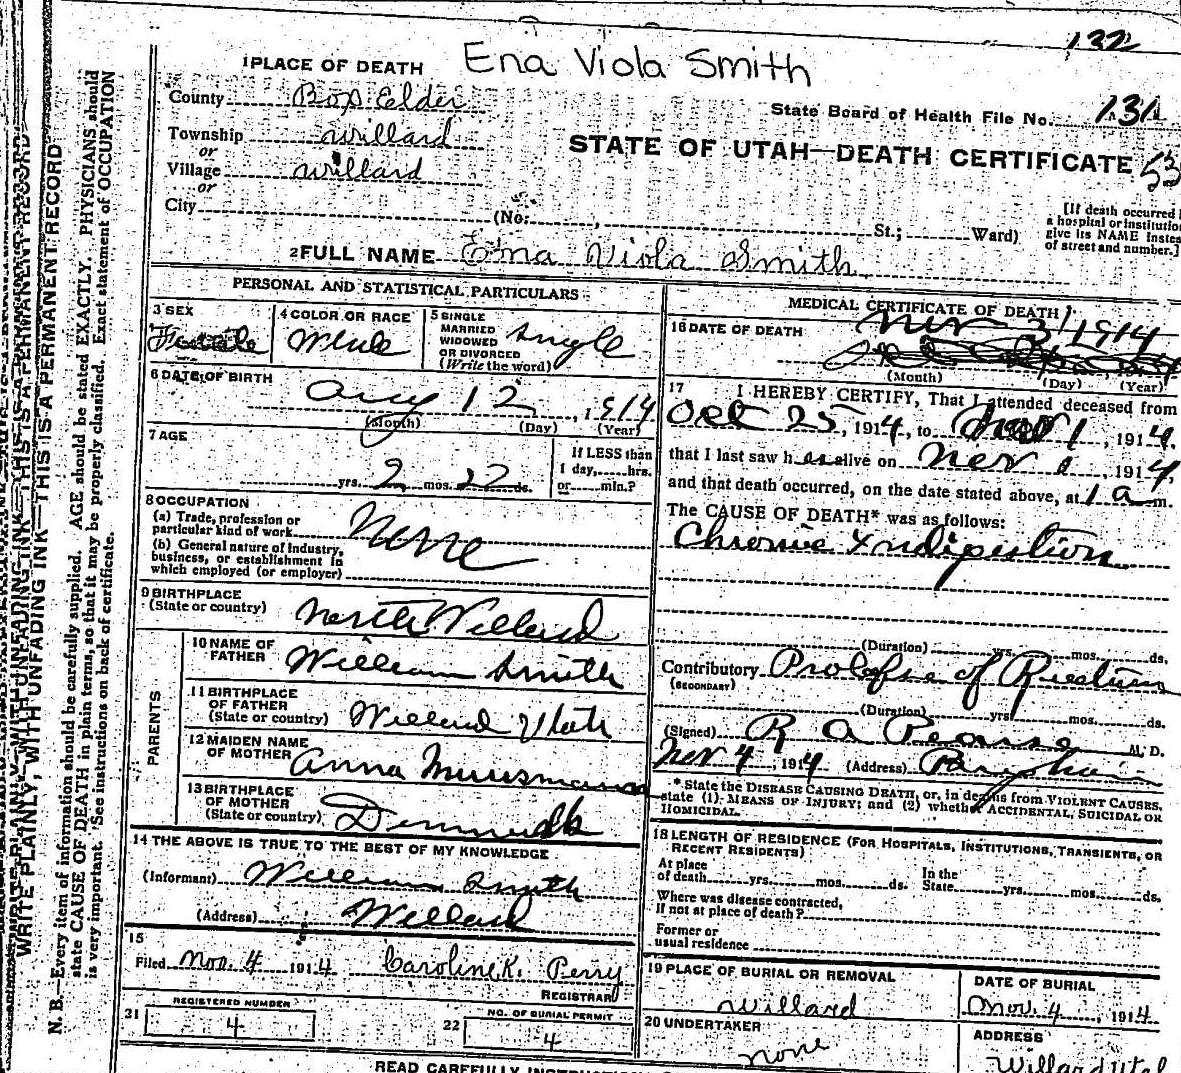 132
Ena Viola Smith
1 PLACE OF DEATH
County Box Elder
State Board of Health File No. 131
Township Willard
or
STATE OF UTAH—DEATH CERTIFICATE 53
Village Willard
or
City (No. , St.; Ward)
[If death occurred
a hospital or institution
give its NAME instea
of street and number.]
2 FULL NAME Ena Viola Smith
PERSONAL AND STATISTICAL PARTICULARS
3 SEX
Female
4 COLOR OR RACE
White
5 SINGLE
MARRIED
WIDOWED
OR DIVORCED
(Write the word)
Single
6 DATE OF BIRTH
Aug 12, 1914
(Month) (Day) (Year)
7 AGE
yrs. 2 mos. 22 ds.
If LESS than
1 day, hrs.
or min.?
8 OCCUPATION
(a) Trade, profession or
particular kind of work
(b) General nature of industry,
business, or establishment in
which employed (or employer)
None
9 BIRTHPLACE
(State or country) North Willard
PARENTS
10 NAME OF
FATHER William Smith
11 BIRTHPLACE
OF FATHER
(State or country) Willard Utah
12 MAIDEN NAME
OF MOTHER Anna
13 BIRTHPLACE
OF MOTHER
(State or country) Denmark
14 THE ABOVE IS TRUE TO THE BEST OF MY KNOWLEDGE
(Informant) William Smith
(Address) Willard
15
Filed Nov. 4 1914 Caroline K. Perry
REGISTRAR
21 REGISTERED NUMBER
4
22 NO. OF BURIAL PERMIT
4
MEDICAL CERTIFICATE OF DEATH
16 DATE OF DEATH
Nov 3 1914
(Month) (Day) (Year)
17 I HEREBY CERTIFY, That I attended deceased from
Oct 25, 1914, to Nov 1, 1914.
that I last saw h alive on Nov 1, 1914,
and that death occurred, on the date stated above, at 1 a m.
The CAUSE OF DEATH* was as follows:
Chronic Indigestion
(Duration) yrs. mos. ds.
Contributory Prolapse of Rectum
(SECONDARY)
(Duration) yrs. mos. ds.
(Signed) R A Pearse M. D.
Nov 4, 1914 (Address) Brigham
* State the DISEASE CAUSING DEATH, or, in deaths from VIOLENT CAUSES,
state (1) MEANS OF INJURY; and (2) whether ACCIDENTAL, SUICIDAL OR
HOMICIDAL.
18 LENGTH OF RESIDENCE (FOR HOSPITALS, INSTITUTIONS, TRANSIENTS, OR
RECENT RESIDENTS)
At place
of death yrs. mos. ds.
In the
State yrs. mos. ds.
Where was disease contracted,
if not at place of death?
Former or
usual residence
19 PLACE OF BURIAL OR REMOVAL
Willard
DATE OF BURIAL
Nov. 4, 1914
20 UNDERTAKER
none
ADDRESS
Willard Utah
READ CAREFULLY
WRITE PLAINLY, WITH UNFADING INK—THIS IS A PERMANENT RECORD
N. B.—Every item of information should be carefully supplied. AGE should be stated EXACTLY. PHYSICIANS should
state CAUSE OF DEATH in plain terms, so that it may be properly classified. Exact statement of OCCUPATION
is very important. See instructions on back of certificate.